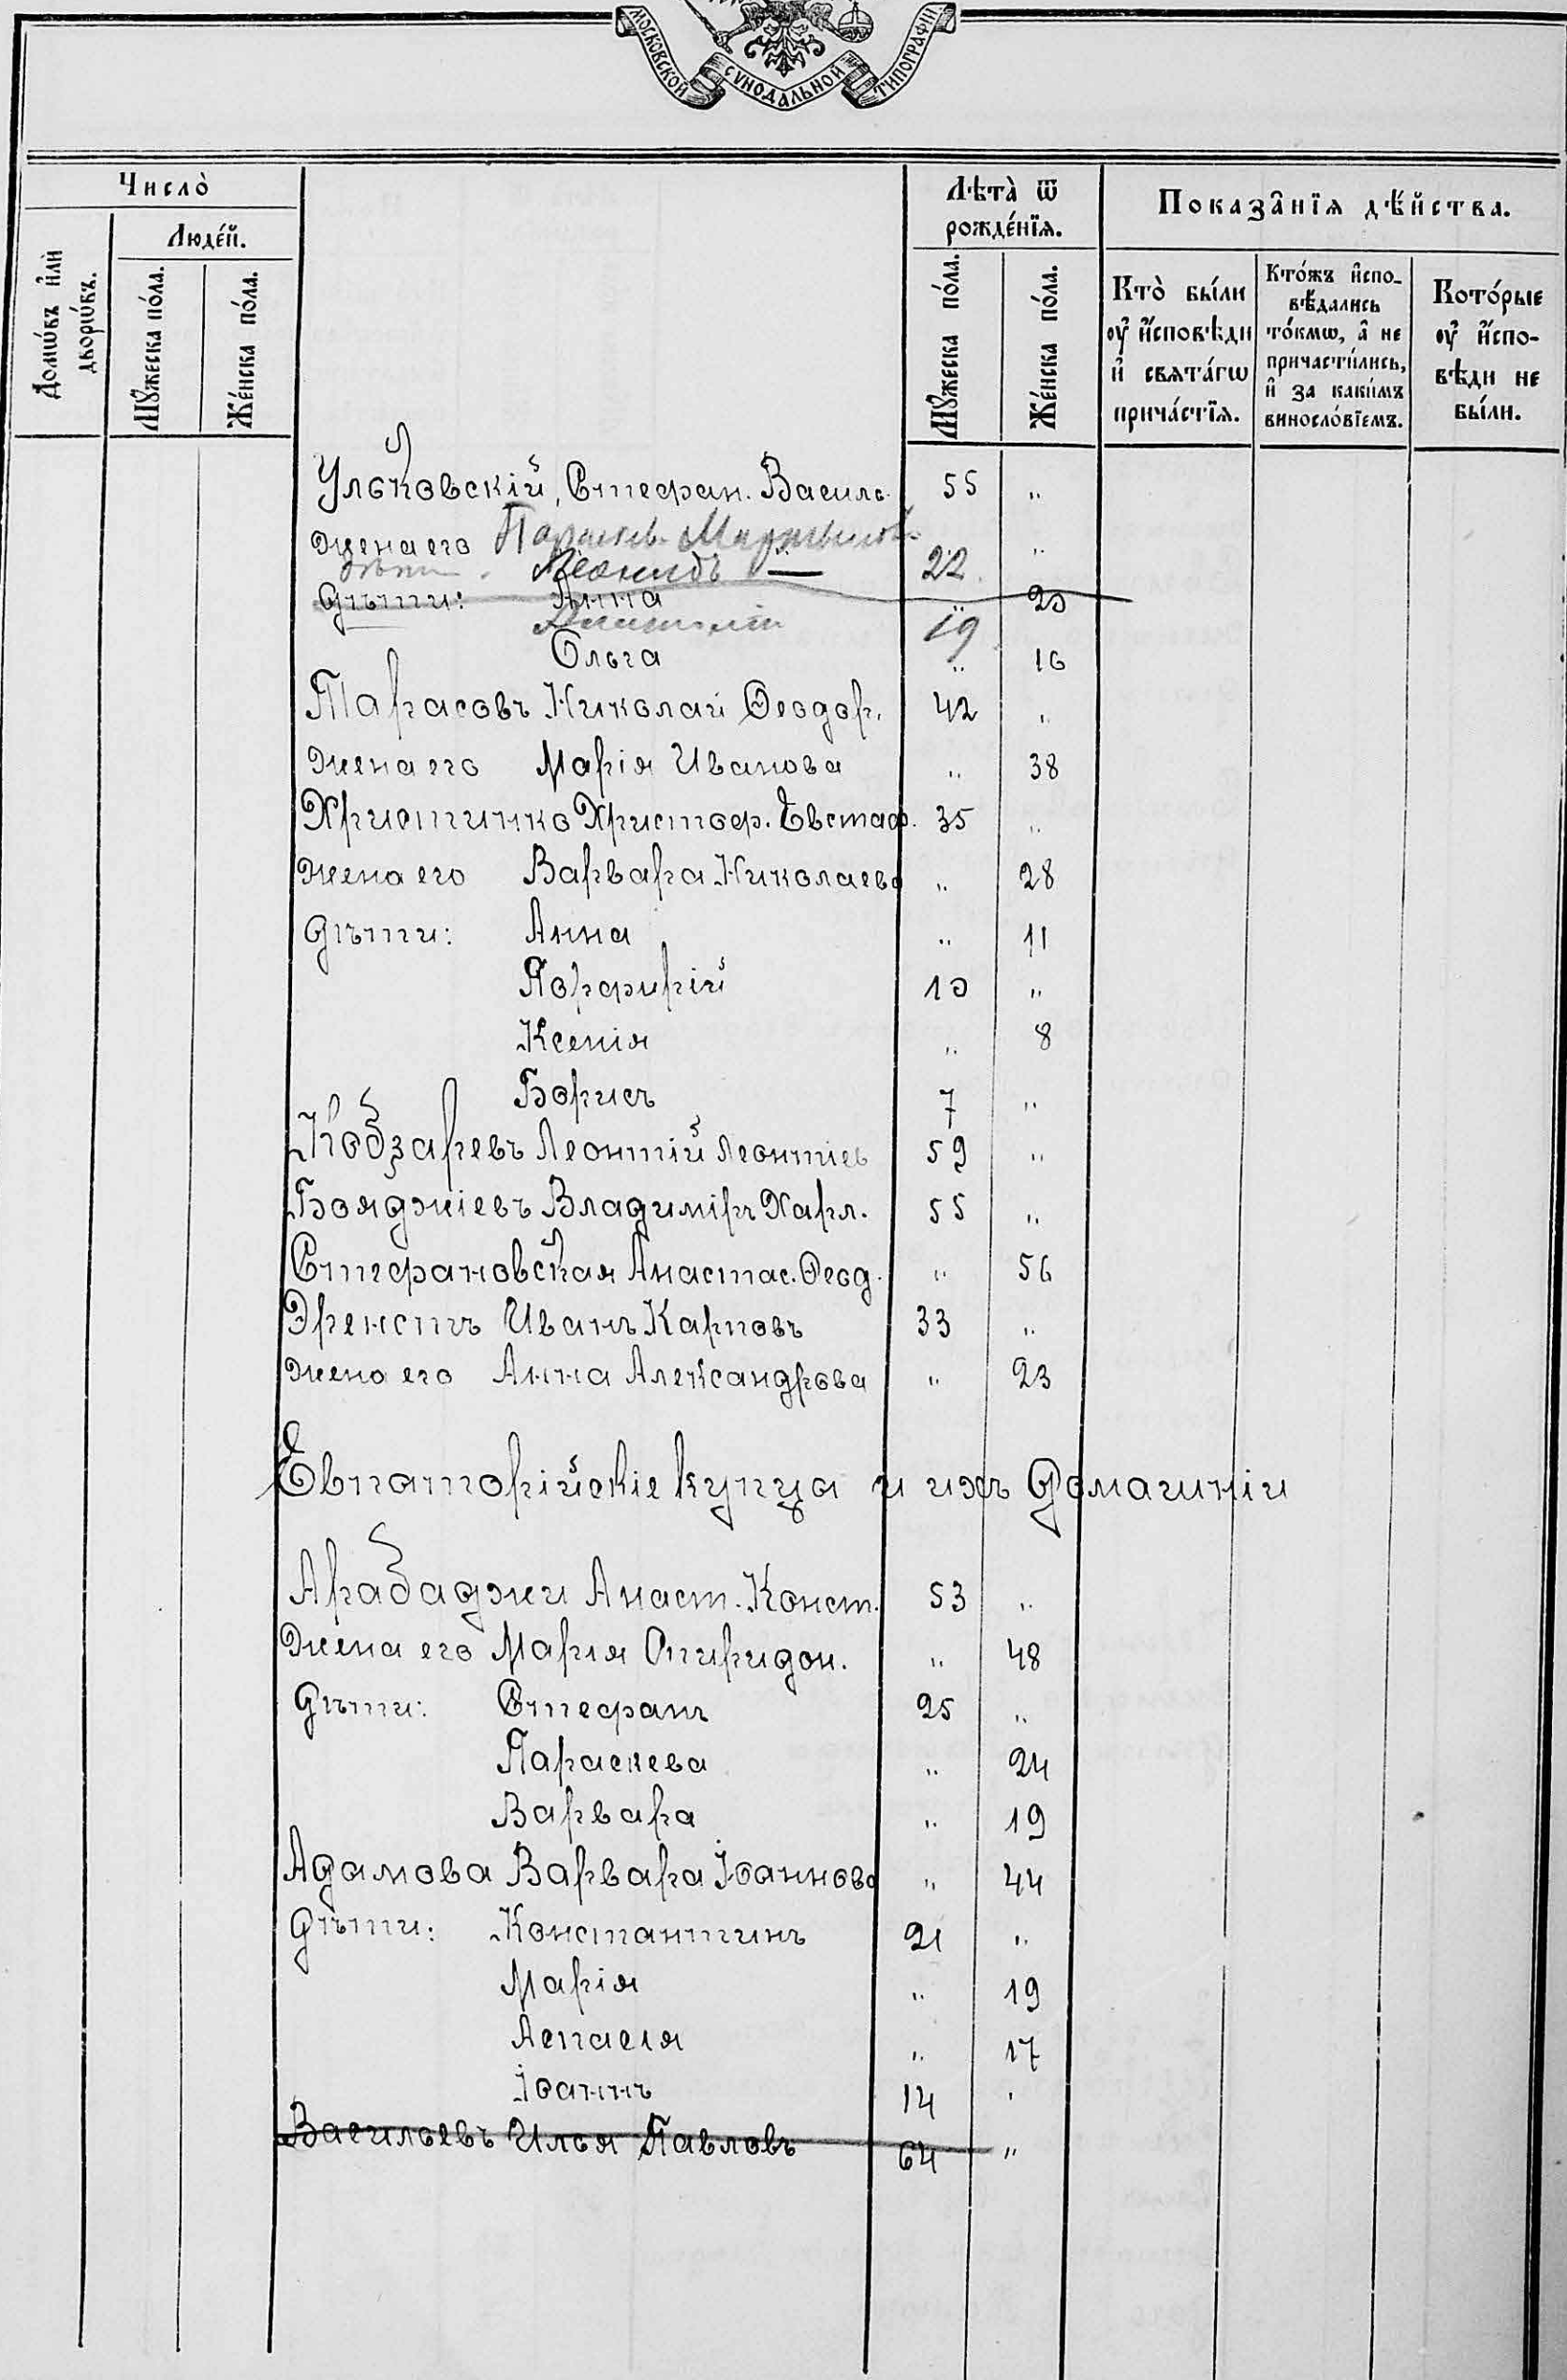 МОСКОВСКОЙ СѴНОДАЛЬНОЙ ТИПОГРАФІИ
Число̀
Люде́й.
Домѡ́въ и҆лѝ дворѡ́въ.
Мꙋ́жеска по́ла.
Же́нска по́ла.
Лѣта̀ ѿ рожде́нїѧ.
Мꙋ́жеска по́ла.
Же́нска по́ла.
Показа̂нїѧ дѣ́йства.
Кто̀ бы́ли ᲂу҆ и҆́сповѣди и҆ свѧта́гѡ прича́стїѧ.
Кто́жъ и҆спо- вѣ́дались то́кмѡ, а҆ не причасти́лись, и҆ за каки́мъ виносло́вїемъ.
Кото́рые ᲂу҆ и҆́спо- вѣди не бы́ли.
Ульковскій, Стефан. Василь. 55 "
жена его Параскев. "
дѣти Леонидъ — 22
Дѣти: Анна " 20
19
Ольга " 16
Тарасовъ Николай Ѳеодор. 42 "
жена его Марія Иванова " 38
Христинко Христоф. Евстаф. 35 "
жена его Варвара Николаева " 28
Дѣти: Анна " 11
Порфирій 10 "
Ксенія " 8
Борисъ 7 "
Кобзаревъ Леонтій Леонтіев 59 "
Бояджіевъ Владиміръ Харл. 55 "
Стефановская Анастас. Ѳеод. " 56
Эренстъ Иванъ Карповъ 33 "
жена его Анна Александрова " 23
Евпаторійскіе купца и ихъ домашніи
Арабаджи Анаст. Конст. 53 "
Жена его Марія Спиридон. " 48
Дѣти: Стефанъ 25 "
Параскева " 24
Варвара " 19
Адамова Варвара Іоаннова " 44
Дѣти: Константинъ 21 "
Марія " 19
Аспасія " 17
Іоаннъ 14 "
Васильевъ Илья Павловъ 64 "